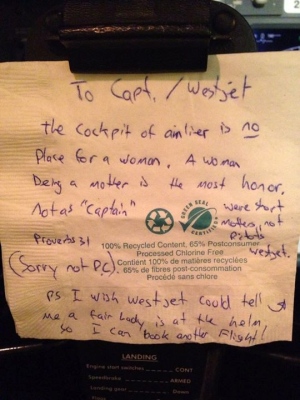 To Capt. / Westjet
the cockpit of airliner is no
Place for a woman. A woman
being a mother is the most honor.
Not as "captain"
were short
mothers, not
pilots
westjet.
Proverbs 31
(Sorry not P.C.)
GREEN SEAL
CERTIFIED
100% Recycled Content, 65% Postconsumer
Processed Chlorine Free
Content 100% de matières recyclées
65% de fibres post-consommation
Procédé sans chlore
PS I wish westjet could tell
me a fair lady is at the helm
so I can book another Flight!
LANDING
Engine start switches CONT
Speedbrake ARMED
Landing gear Down